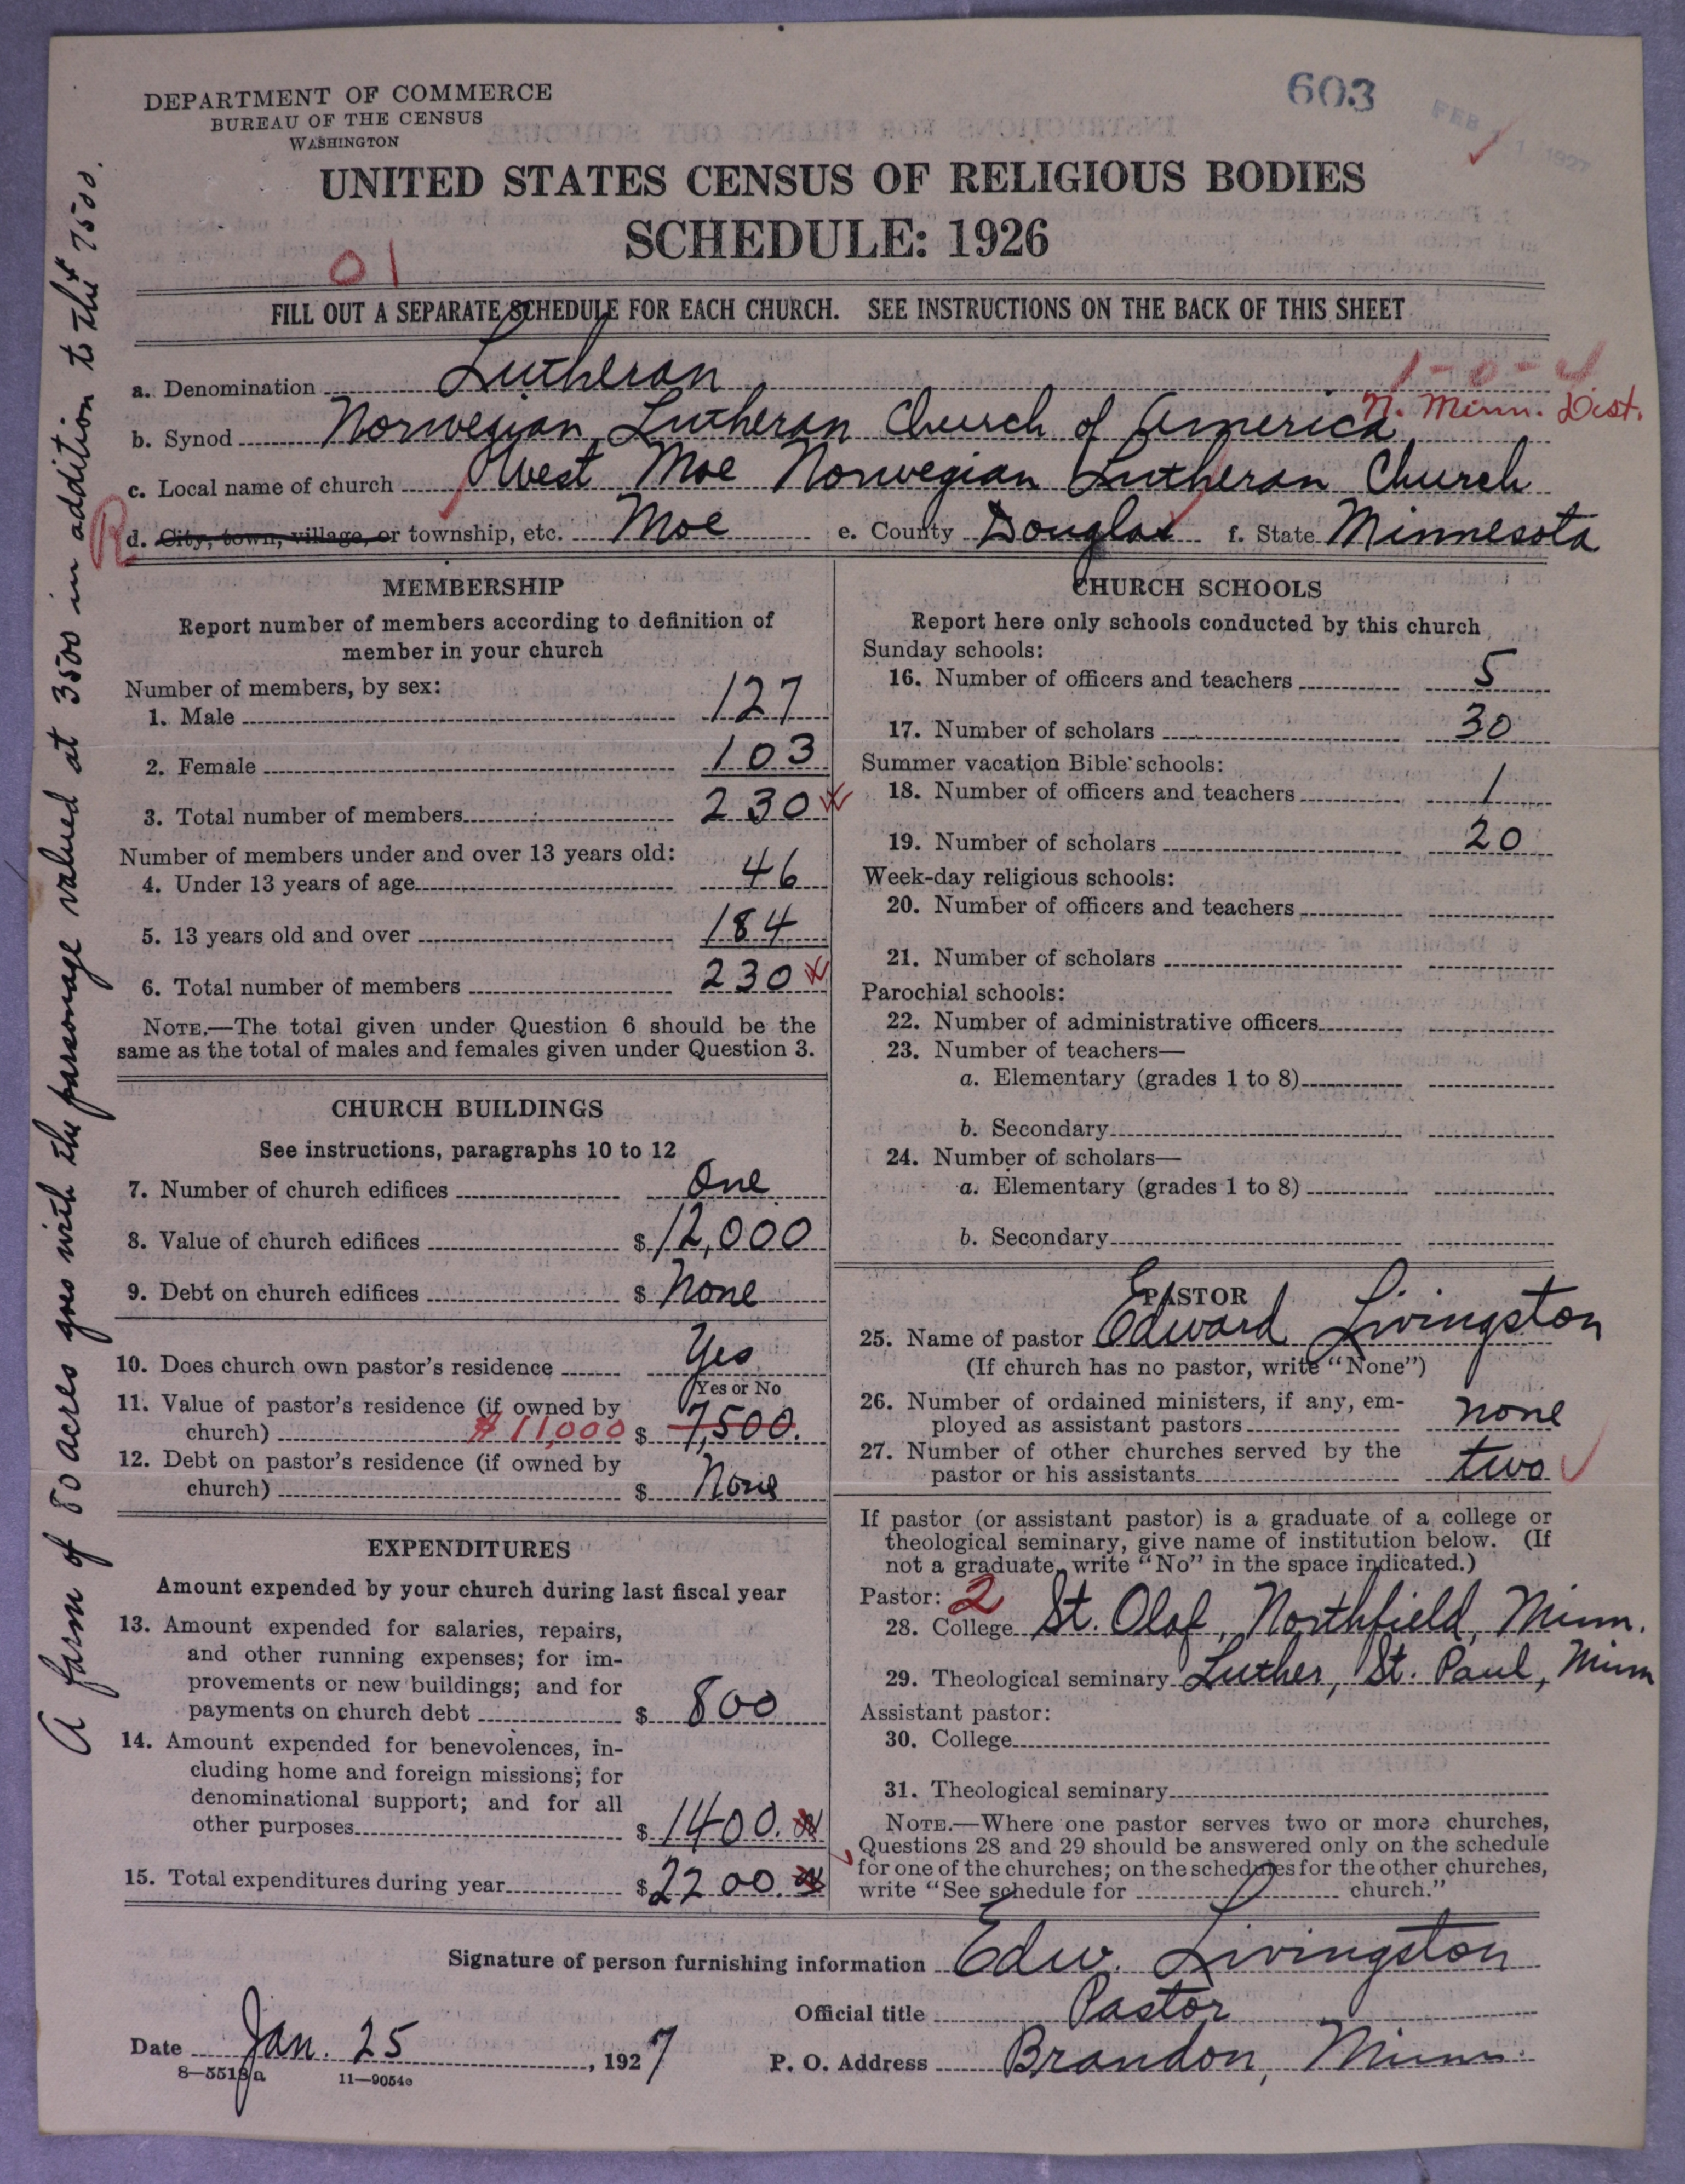 DEPARTMENT OF COMMERCE
BUREAU OF THE CENSUS
WASHINGTON
603
FEB 1 1927
UNITED STATES CENSUS OF RELIGIOUS BODIES
SCHEDULE: 1926
01
FILL OUT A SEPARATE SCHEDULE FOR EACH CHURCH. SEE INSTRUCTIONS ON THE BACK OF THIS SHEET
1-0-4
a. Denomination Lutheran
N. Minn. Dist.
b. Synod Norwegian Lutheran Church of America
c. Local name of church West Moe Norwegian Lutheran Church
R d. City, town, village, or township, etc. Moe e. County Douglas f. State Minnesota
MEMBERSHIP
Report number of members according to definition of
member in your church
Number of members, by sex:
1. Male 127
2. Female 103
3. Total number of members 230
Number of members under and over 13 years old:
4. Under 13 years of age 46
5. 13 years old and over 184
6. Total number of members 230
NOTE.—The total given under Question 6 should be the
same as the total of males and females given under Question 3.
CHURCH BUILDINGS
See instructions, paragraphs 10 to 12
7. Number of church edifices One
8. Value of church edifices $12,000
9. Debt on church edifices $ None
10. Does church own pastor's residence Yes
Yes or No
11. Value of pastor's residence (if owned by
church) $11,000 $ 7,500.
12. Debt on pastor's residence (if owned by
church) $ None
EXPENDITURES
Amount expended by your church during last fiscal year
13. Amount expended for salaries, repairs,
and other running expenses; for im-
provements or new buildings; and for
payments on church debt $ 800
14. Amount expended for benevolences, in-
cluding home and foreign missions; for
denominational support; and for all
other purposes $1400.
15. Total expenditures during year $2200.
CHURCH SCHOOLS
Report here only schools conducted by this church
Sunday schools:
16. Number of officers and teachers 5
17. Number of scholars 30
Summer vacation Bible schools:
18. Number of officers and teachers 1
19. Number of scholars 20
Week-day religious schools:
20. Number of officers and teachers
21. Number of scholars
Parochial schools:
22. Number of administrative officers
23. Number of teachers—
a. Elementary (grades 1 to 8)
b. Secondary
24. Number of scholars—
a. Elementary (grades 1 to 8)
b. Secondary
PASTOR
25. Name of pastor Edward Livingston
(If church has no pastor, write "None")
26. Number of ordained ministers, if any, em-
ployed as assistant pastors none
27. Number of other churches served by the
pastor or his assistants two
If pastor (or assistant pastor) is a graduate of a college or
theological seminary, give name of institution below. (If
not a graduate, write "No" in the space indicated.)
Pastor: 2
28. College St. Olaf, Northfield, Minn.
29. Theological seminary Luther, St. Paul, Minn
Assistant pastor:
30. College
31. Theological seminary
NOTE.—Where one pastor serves two or more churches,
Questions 28 and 29 should be answered only on the schedule
for one of the churches; on the schedules for the other churches,
write "See schedule for church."
Signature of person furnishing information Edw. Livingston
Official title Pastor
Date Jan. 25, 1927 P. O. Address Brandon, Minn.
8—5513a 11—9054c
A farm of 80 acres goes with the parsonage valued at 3500 in addition to the $7500.